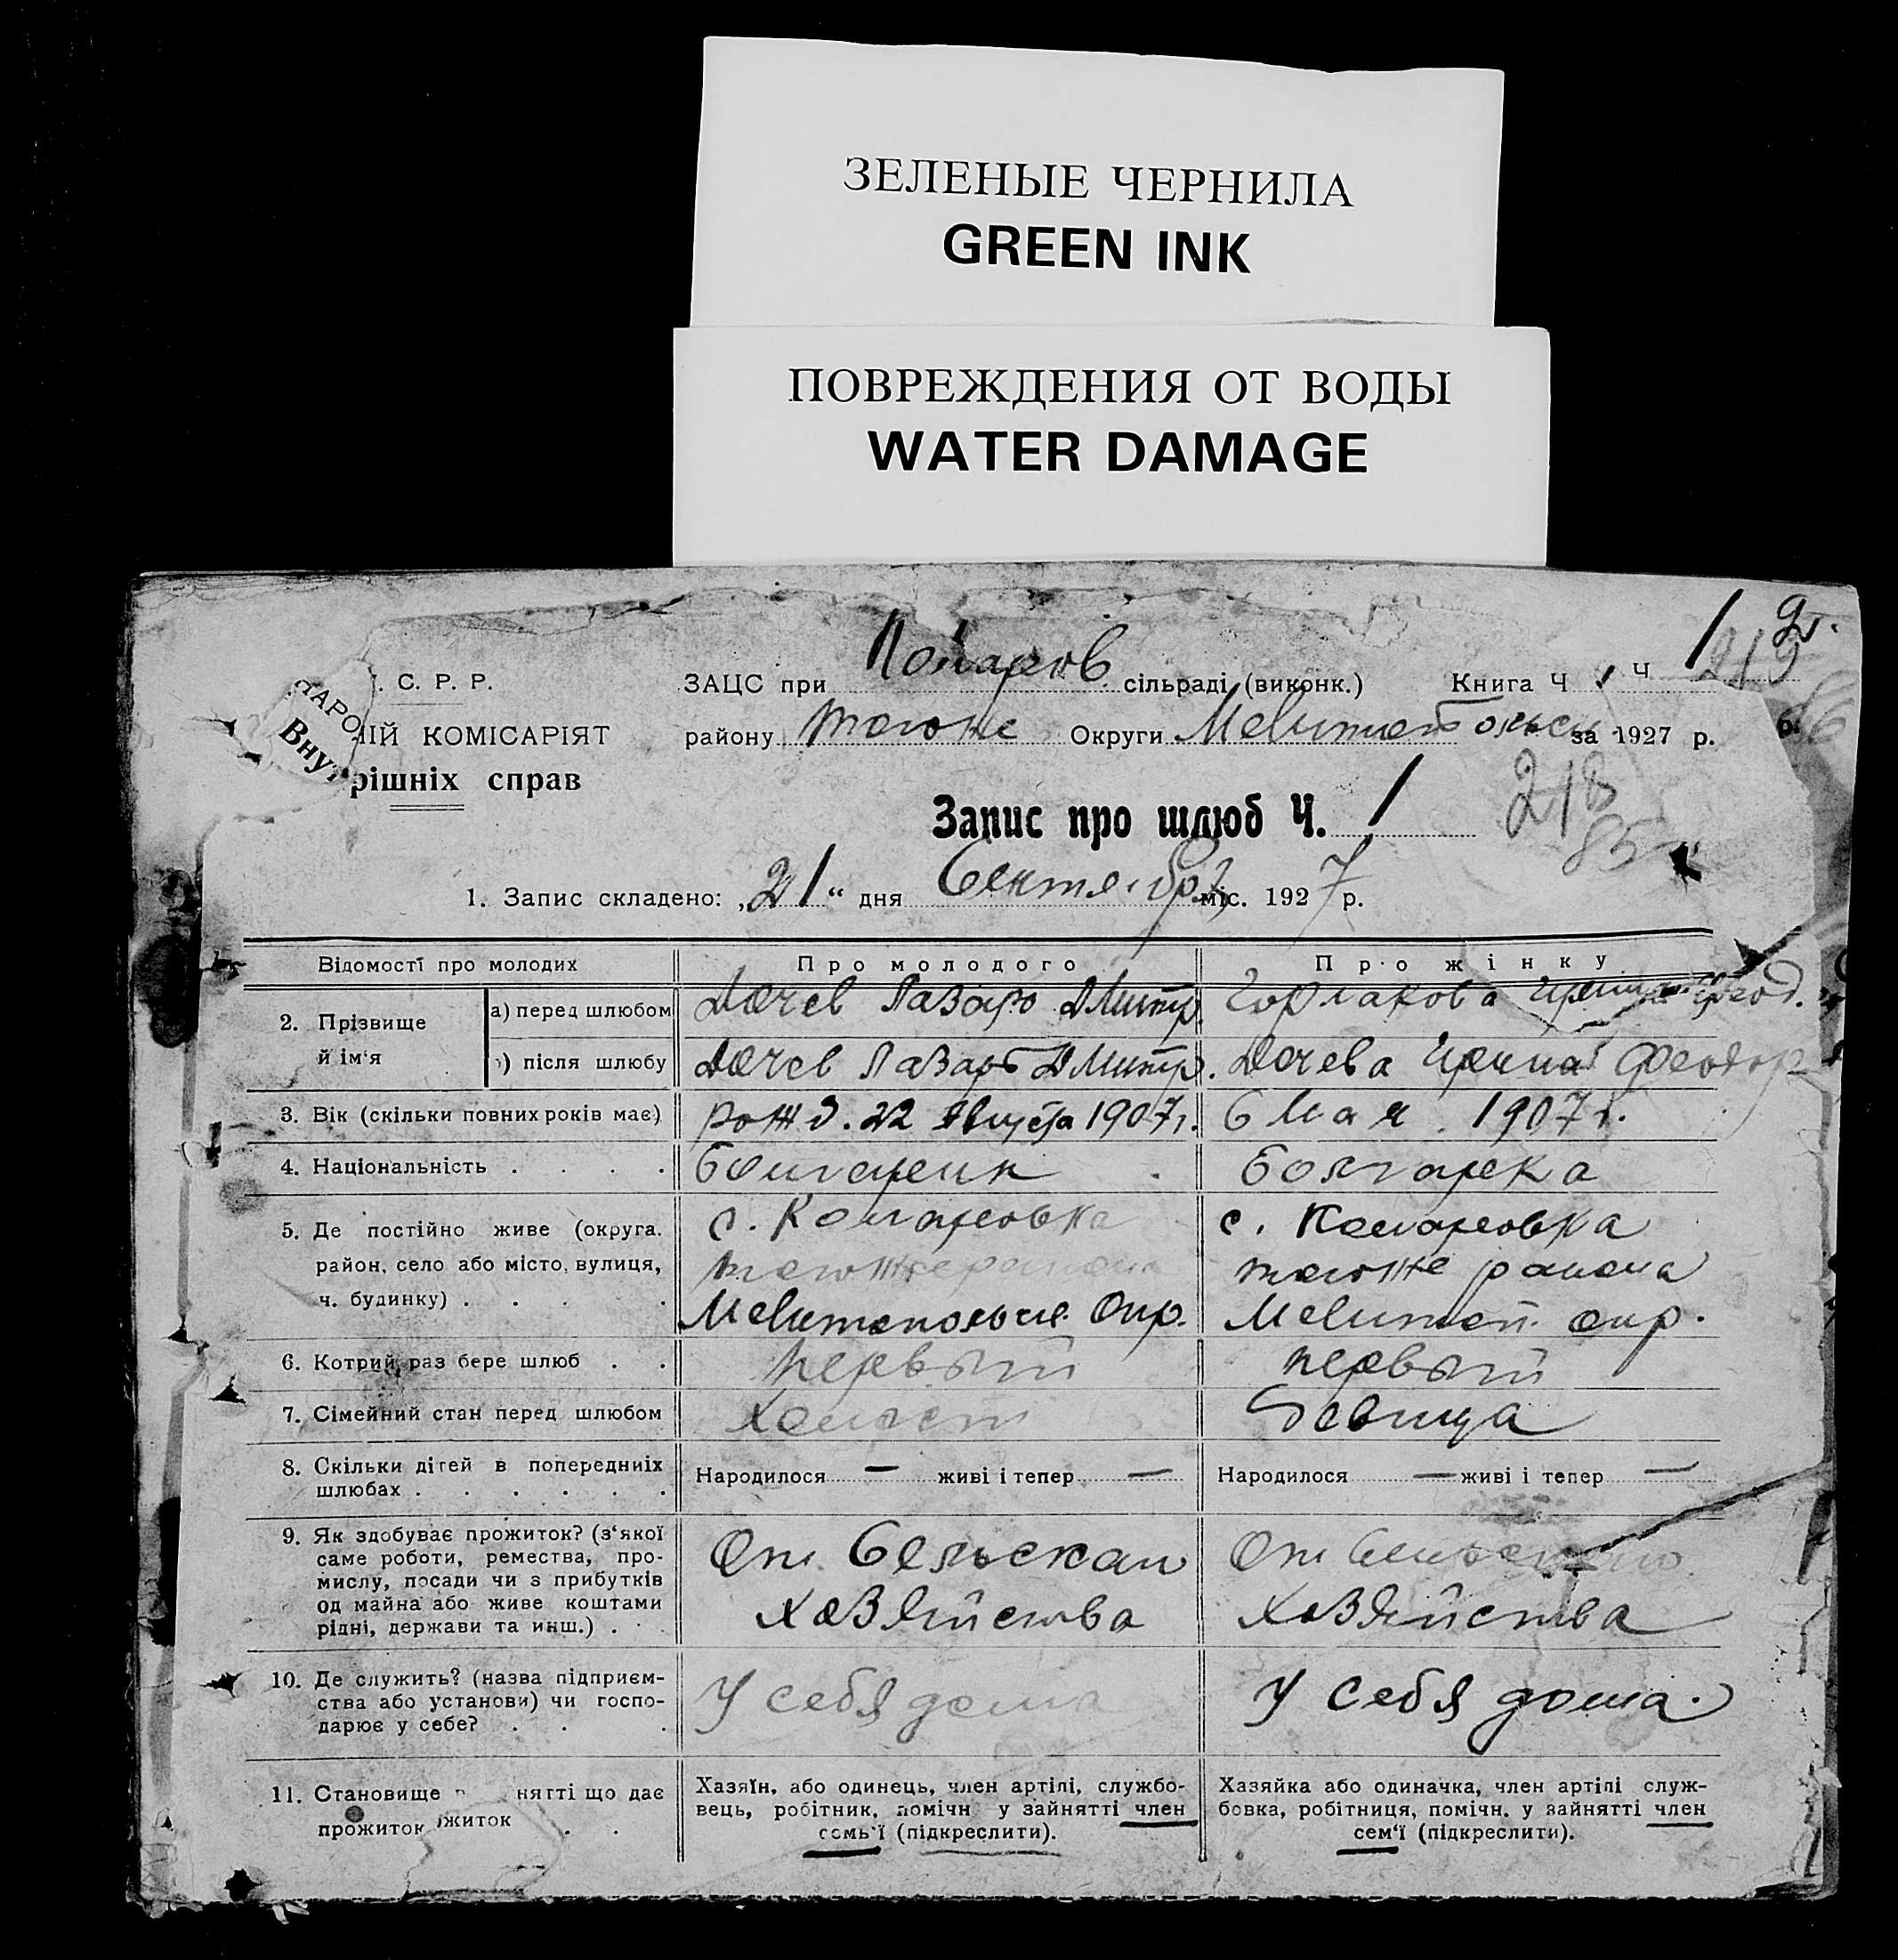 ЗЕЛЕНЫЕ ЧЕРНИЛА
GREEN INK
ПОВРЕЖДЕНИЯ ОТ ВОДЫ
WATER DAMAGE
. С. Р. Р.
НАРО
ІЙ КОМІСАРІЯТ
Внут
рішніх справ
ЗАЦС при сільраді (виконк.) Книга Ч Ч 1
району тогоже Округи Мелитопольск за 1927 р.
Запис про шлюб Ч. 1
218
85
1. Запис складено: „21“ дня Сентября міс. 1927 р.
Відомості про молодих Про молодого Про жінку
2. Прізвище й ім'я
а) перед шлюбом Дочев Лазарь Дмитр. Ирина Феод.
) після шлюбу Дочев Лазарь Дмитр. Дочева Ирина Феодор
3. Вік (скільки повних років має) рожд. 22 Августа 1907 г. 6 Мая 1907 г.
4. Національність . . . . Болгарин Болгарка
5. Де постійно живе (округа. район, село або місто, вулиця, ч. будинку) . . . .
с. Комаровка
тогоже района
Мелитопольск. Окр.
с. Комаровка
тогоже района
Мелитоп. окр.
6. Котрий раз бере шлюб . . первый первый
7. Сімейний стан перед шлюбом Холост Девица
8. Скільки дітей в попередніх шлюбах . . . . . .
Народилося — живі і тепер —
Народилося — живі і тепер —
9. Як здобуває прожиток? (з'якої
саме роботи, ремества, про-
мислу, посади чи з прибутків
од майна або живе коштами
рідні, держави та инш.) . . .
От Сельскаго
Хозяйства
От Сельскаго
Хозяйства
10. Де служить? (назва підприєм-
ства або установи) чи госпо-
дарює у себе? . . .
У себя дома
У себя дома.
11. Становище нятті що дає
прожиток житок . .
Хазяїн, або одинець, член артілі, службо-
вець, робітник, помічн у зайнятті член
семь'ї (підкреслити).
Хазяйка або одиначка, член артілі служ-
бовка, робітниця, помічн. у зайнятті член
сем'ї (підкреслити).